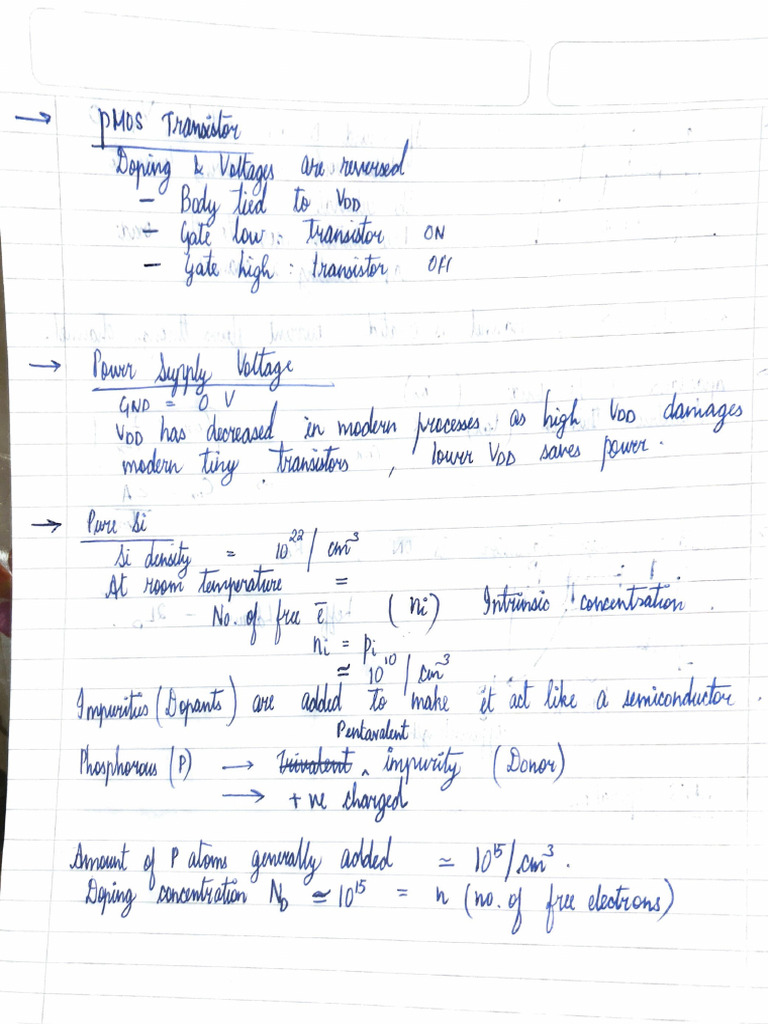 → pMOS Transistor
Doping & Voltages are reversed
- Body tied to VDD
- Gate low : transistor ON
- Gate high : transistor OFF
→ Power Supply Voltage
GND = 0 V
VDD has decreased in modern processes as high VDD damages
modern tiny transistors, lower VDD saves power.
→ Pure Si
Si density = 10²²/cm³
At room temperature =
No. of free e̅ (ni) Intrinsic concentration.
ni = pi
≃ 10¹⁰/cm³
Impurities (Dopants) are added to make it act like a semiconductor.
Pentavalent
Phosphorous (P) → Trivalent ^ impurity (Donor)
→ +ve charged
Amount of P atoms generally added ≃ 10¹⁵/cm³.
Doping concentration ND ≃ 10¹⁵ = n (no. of free electrons)